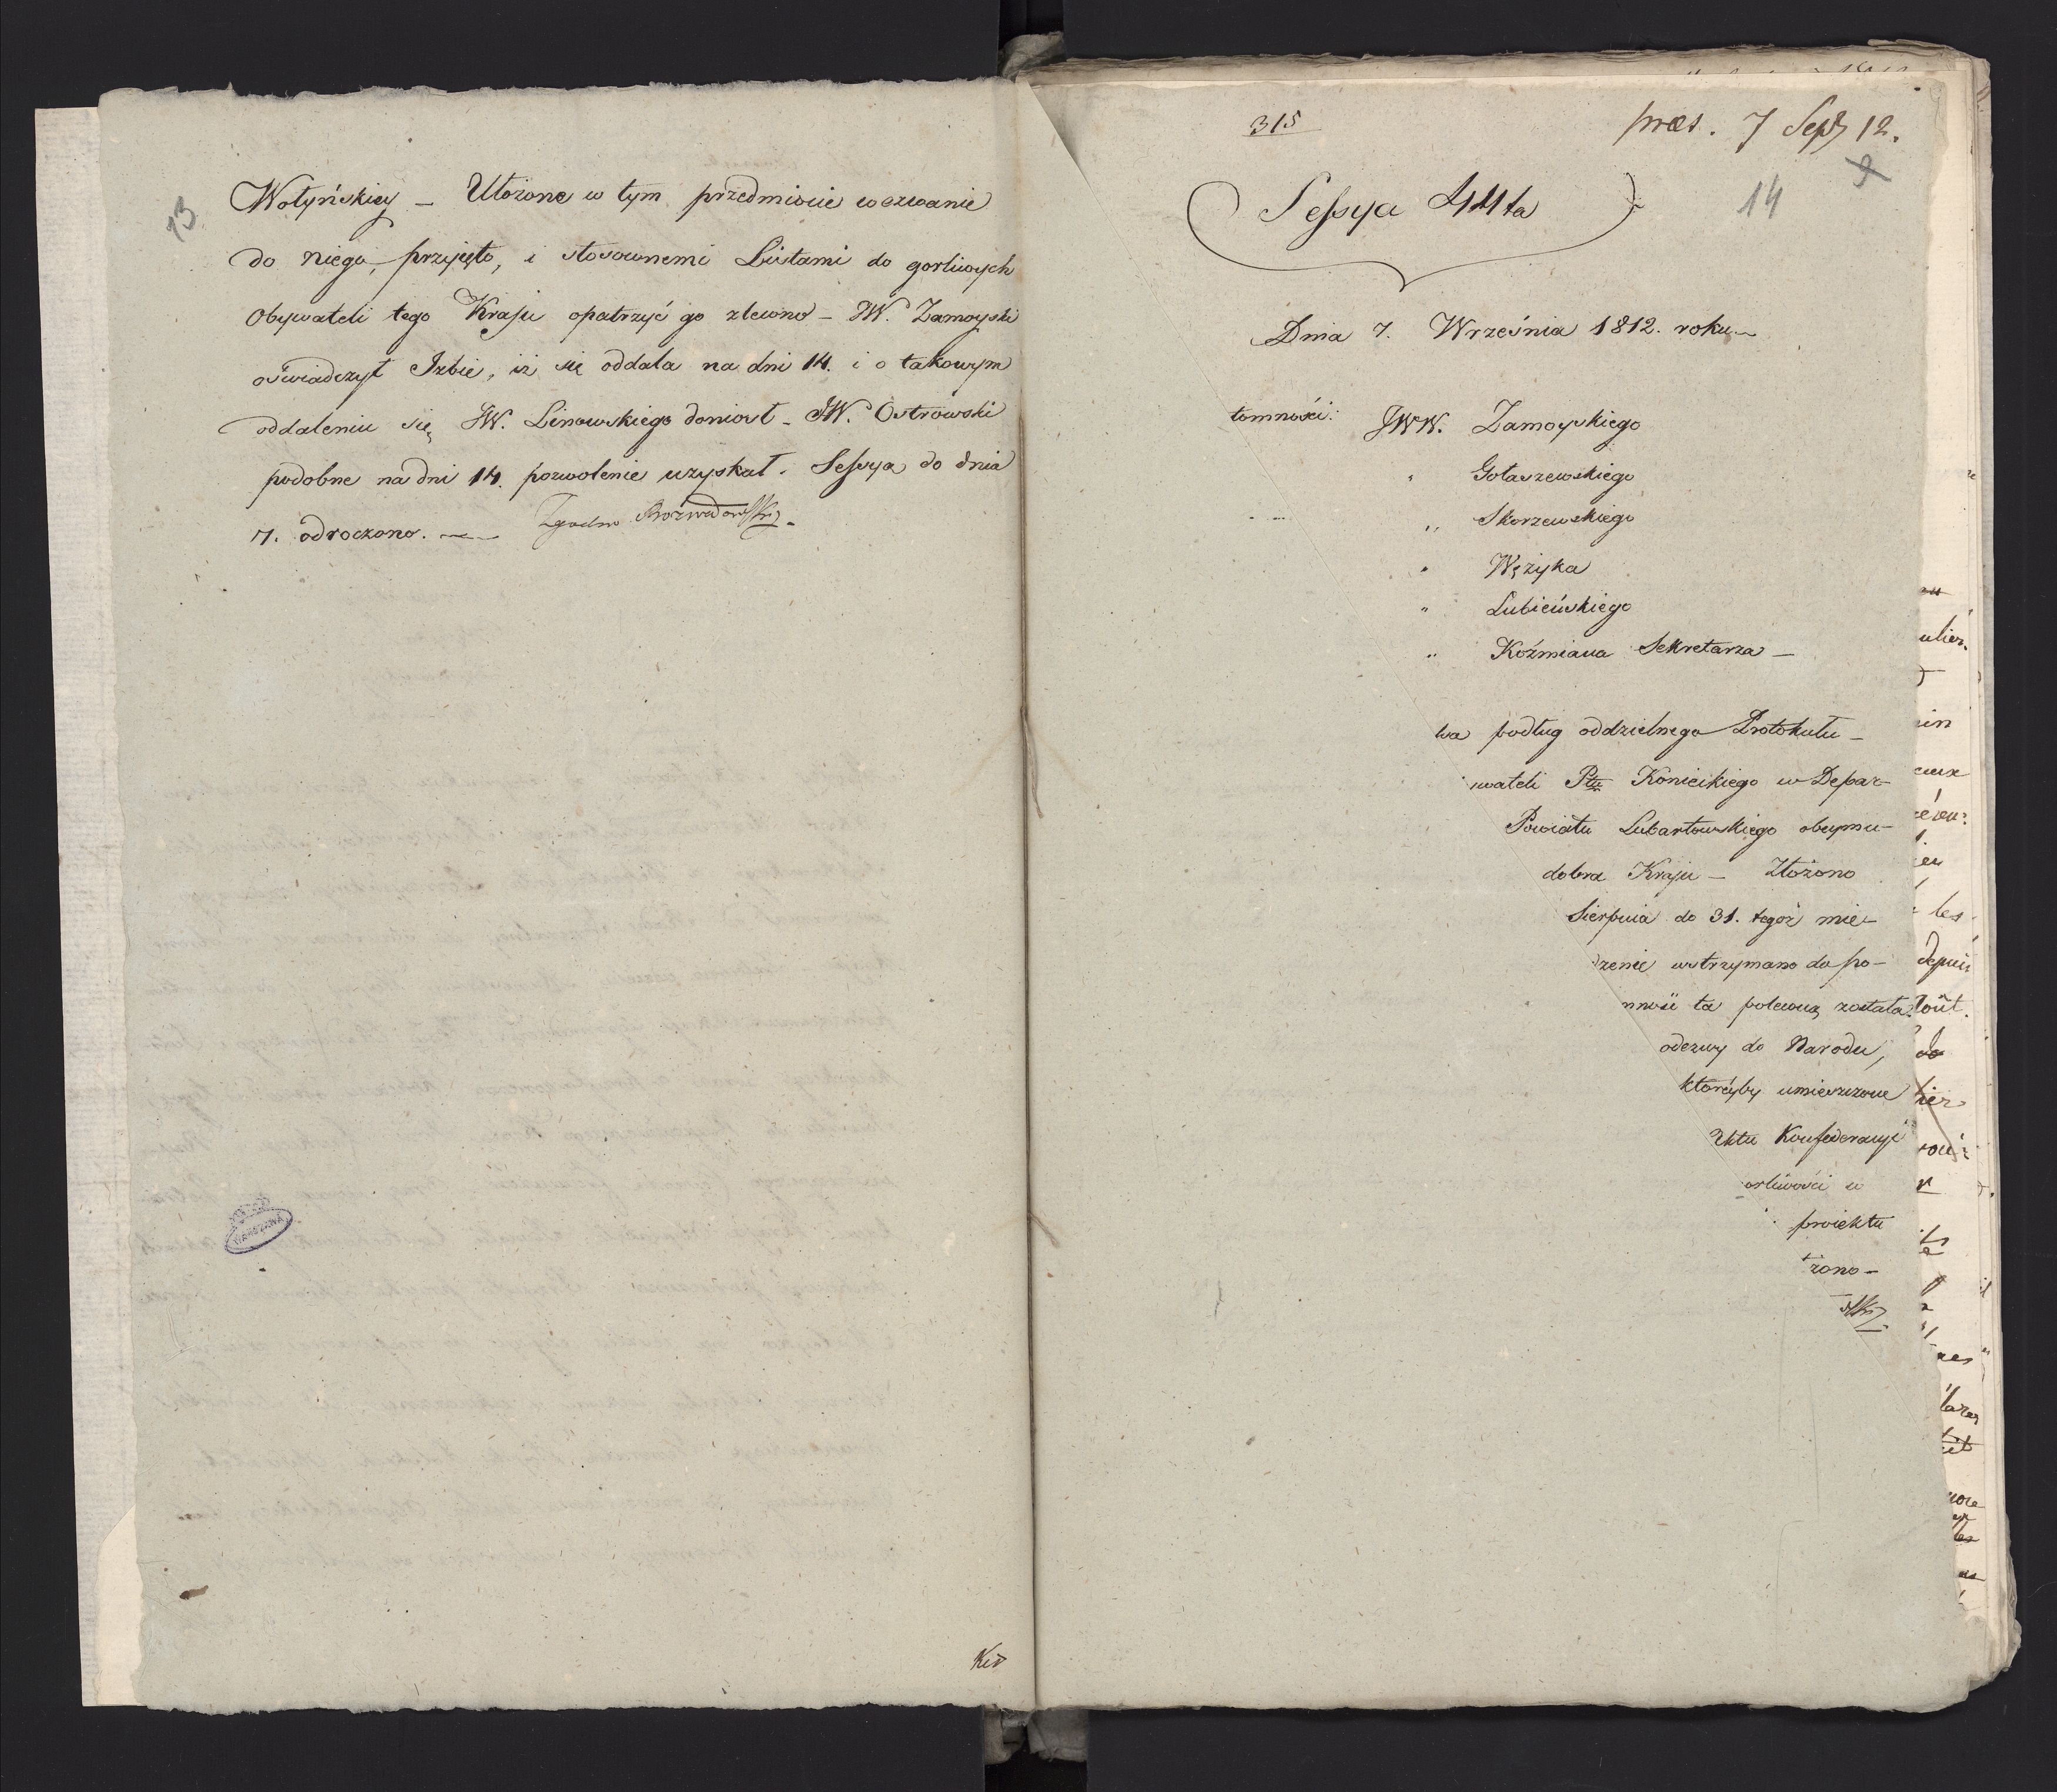 13
Wołyńskiey – Ułożone w tym przedmiocie wezwanie
do niego, przyjęto, i stosownemi Listami do gorliwych
Obywateli tego Kraju opatrzyć go zlecono – JW. Zamoyski
oświadczył Izbie, iż się oddala na dni 14. i o takowym
oddaleniu się JW. Linowskiego doniosł – JW. Ostrowski
podobne na dni 14. pozwolenie uzyskał. Sessya do dnia
7. odroczono. —
Zgodno
315
præs. 7 Sept 12.
14
Sessya 44ta
Dnia 7. Września 1812. roku
tomności: JWW. Zamoyskiego
" Gołaszewskiego
" Skorzewskiego
" Wężyka
" Lubieńskiego
" Koźmiana Sekretarza –
wa podług oddzielnego Protokułu –
wateli Ptu Konieckiego w Depar-
Powiatu Lubartowskiego obeymu-
dobra Kraju – Złożono
Sierpnia do 31. tegoż mie-
zenie wstrzymano do po-
nność ta poleconą została.
odezwy do Narodu,
któreyby umieszczone
Aktu Konfederacyi
orliwości w
proiektu
żono –